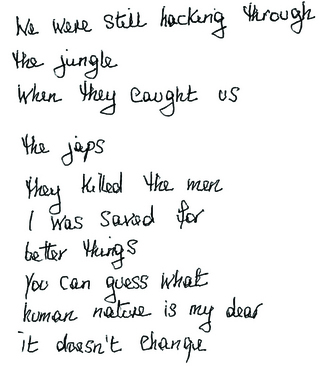 We were still hacking through
the jungle
When they caught us
the japs
they killed the men
I was saved for
better things
You can guess what
human nature is my dear
it doesn't change